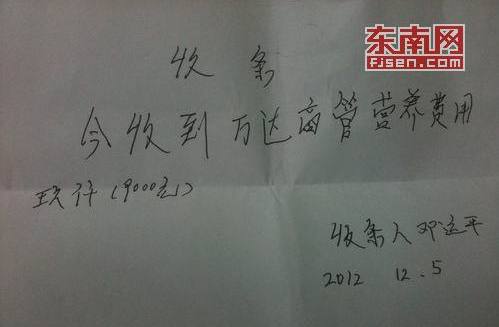 东南网
Fjsen.com
收 条
今收到万达商管营养费用
玖仟(9000元)
收条人 邓运平
2012 12.5